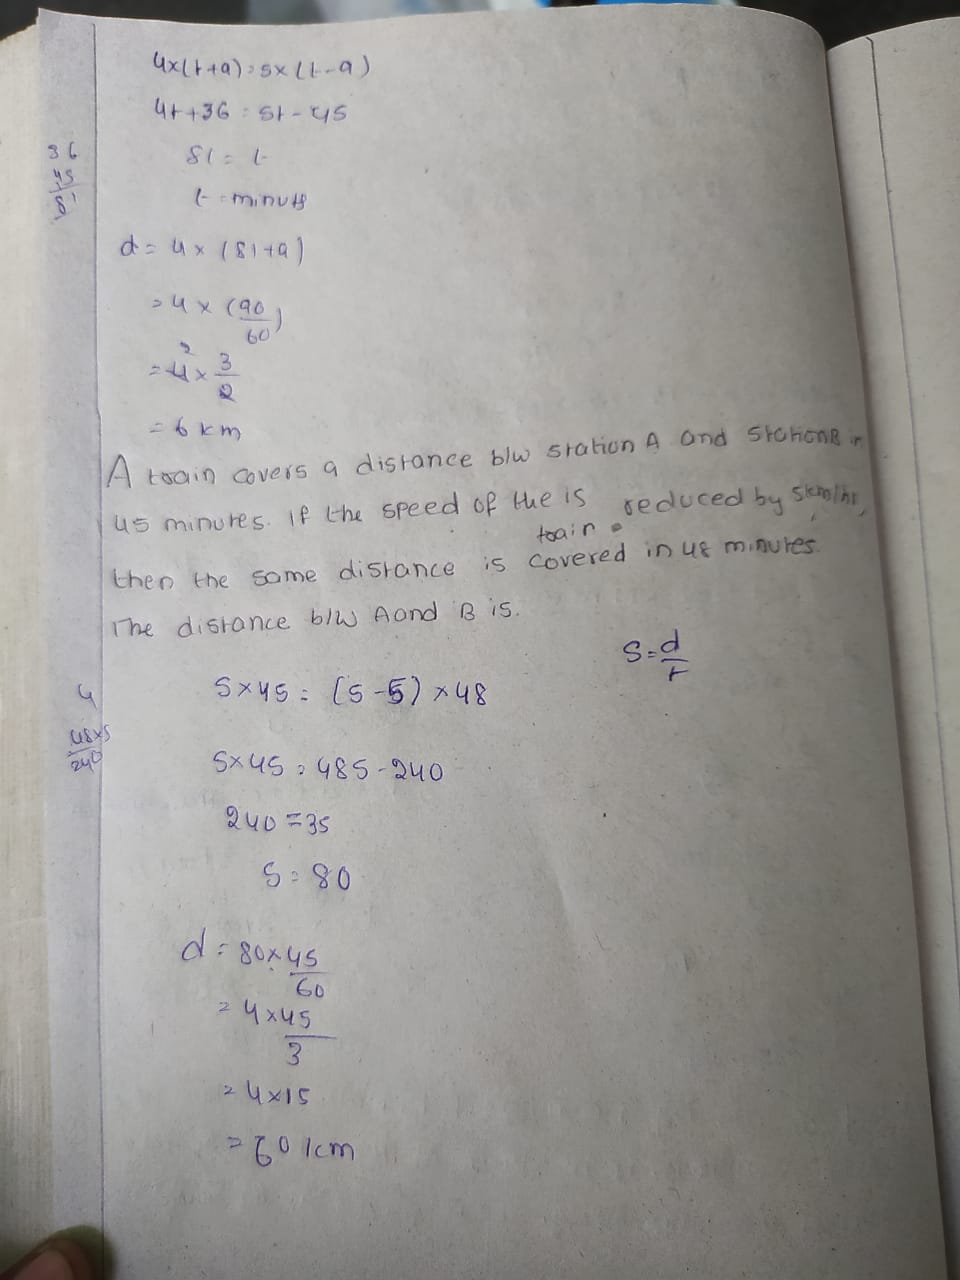 4x(t+9)=5x(t-9)
4t+36=5t-45
36
45
81
81=t
t=minuts
d=4x(81+9)
=4x(90/60)
2
=4x3/2
=6km
A train covers a distance b/w station A and Station B in
45 minutes. If the speed of the is reduced by 5km/hr,
train
then the same distance is covered in 48 minutes.
The distance b/w A and B is.
S=d/t
S×45=(S-5)×48
4
48×5
240
S×45=48S-240
240=3S
S=80
d=80×45/60
=4×45/3
=4×15
=60km